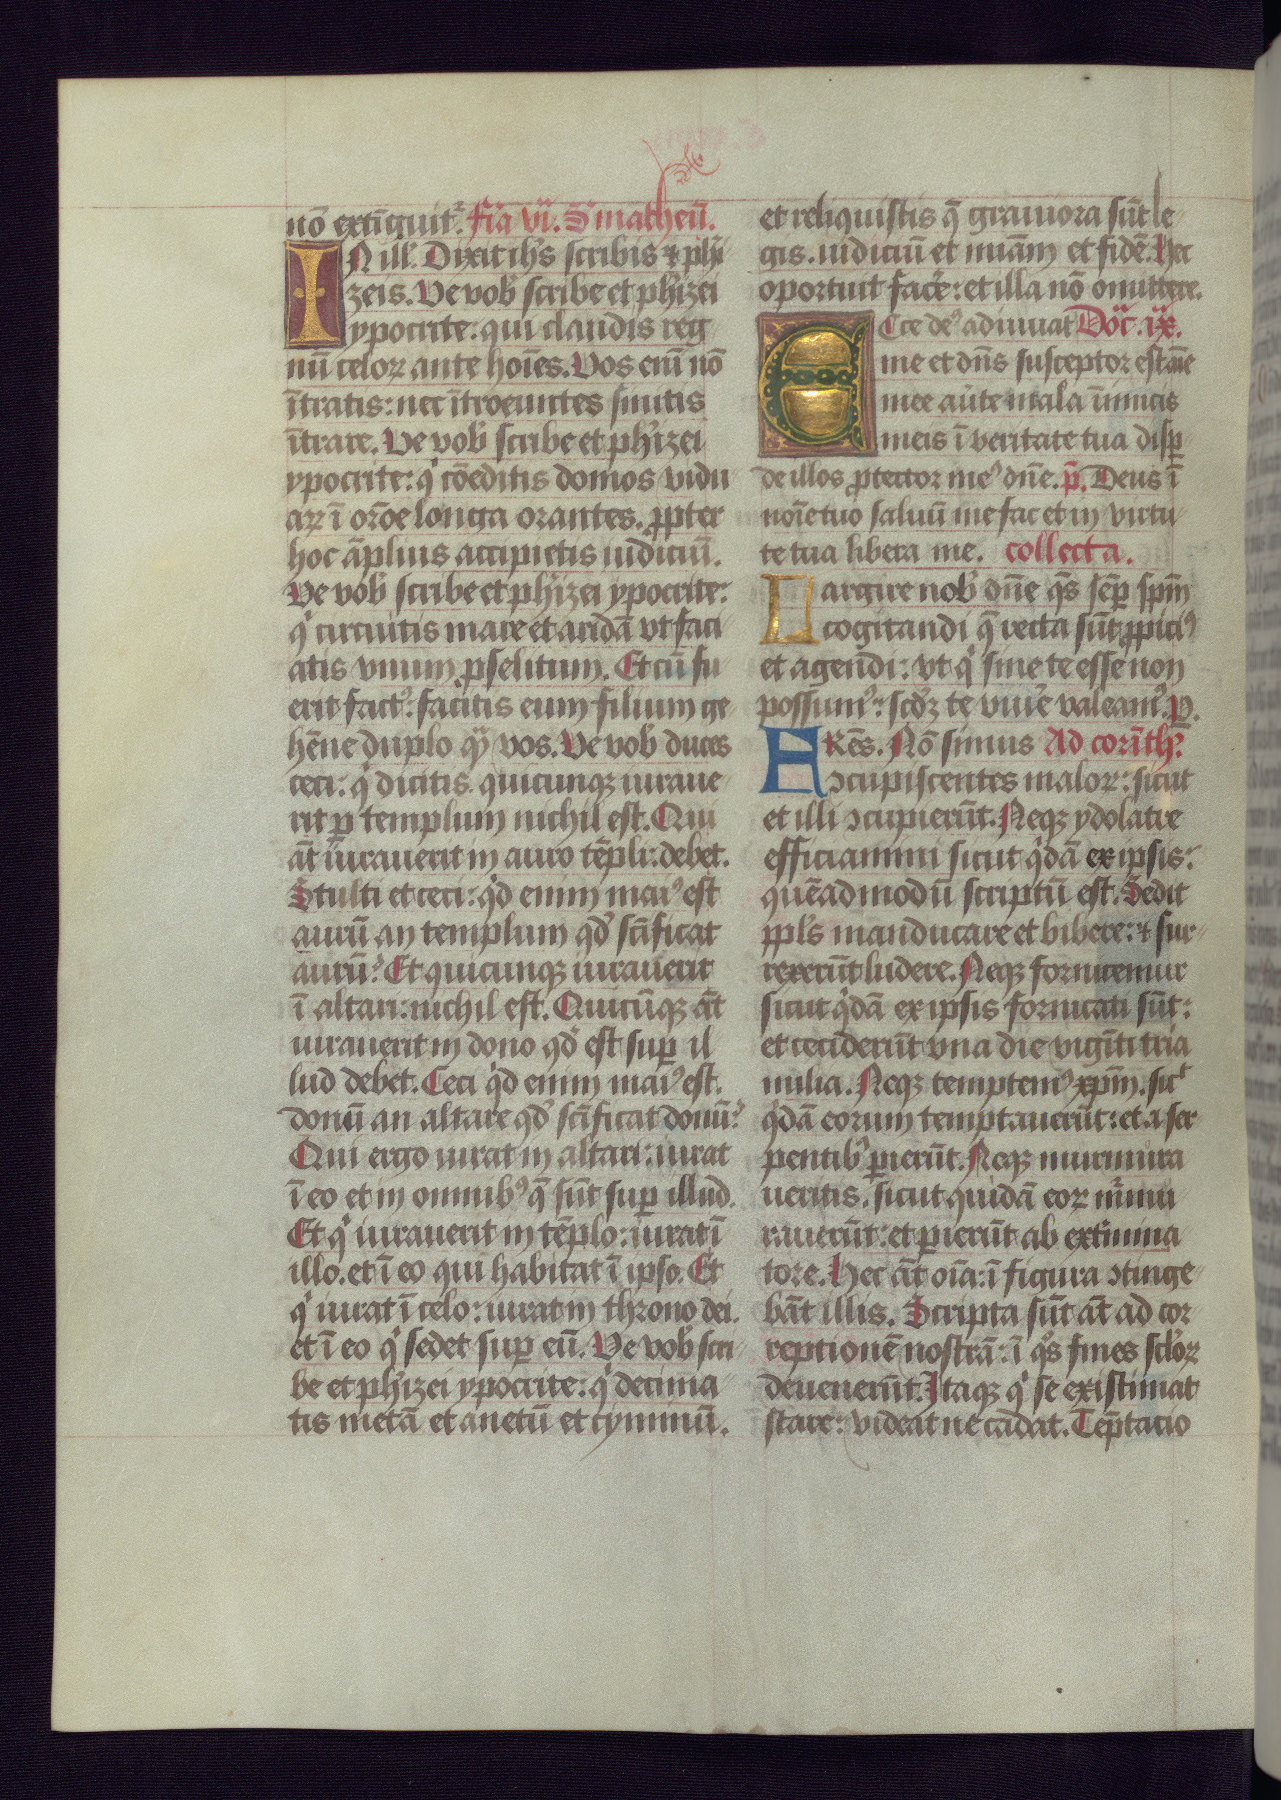 nō extīguit᷒. fīa vi. S̄ matheū.
IN ill̓. Dixit ih̄s scribis ⁊ ph̓i
zeis. Ve vob̓ scribe et ph̓izei
ypocrite: qui clauditis reg
nū celoꝝ ante hoīes. Vos enī nō
ītratis: nec ītroeuntes sinitis
ītrare. Ve vob̓ scribe et ph̓izei
ypocrite: qͥ cōeditis domos vidu
aꝝ ī orōe longa orantes. ꝓpter
hoc āplius accipietis iudiciū.
Ve vob̓ scribe et ph̓izei ypocrite:
qͥ circuitis mare et aridā vt faci
atis vnum ꝓselitum. Et cū fu
erit factꝰ: facitis eum filium ge
hēne duplo qͣ̄ vos. Ve vob̓ duces
ceci: qͥ dicitis. quicunqꝫ iuraue
rit ꝑ templum nichil est. Qui
āt iurauerit in auro tēpli: debet.
Stulti et ceci: qͥd enim maiꝰ est
aurū an templum qd̓ scīficat
aurū? Et quicunqꝫ iurauerit
ī altari: nichil est. Quicūqꝫ āt
iurauerit in dono qd̓ est suꝑ il
lud debet. Ceci qͥd enim maiꝰ est.
donū an altare qd̓ scīficat donū?
Qui ergo iurat in altari: iurat
ī eo et in omnibꝰ q̄ sūt suꝑ illud.
Et qͥ iurauerit in tēplo: iurat ī
illo. et ī eo qui habitat ī ipso. Et
qͥ iurat ī celo: iurat in throno dei.
et ī eo qͥ sedet suꝑ eū. Ve vob̓ scri
be et ph̓izei ypocrite: qͥ decima
tis metā et anetū et cyminū.
et reliquistis q̄ grauiora sūt le
gis. iudiciū et miām et fidē. Hec
oportuit facē: et illa nō omittere.
Ecce deꝰ adiuuat Do͞c. ix.
me et dn̄s susceptor est āīe
mee aūte mala īimicis
meis ī veritate tua disꝑ
de illos ꝓtector meꝰ dn̄e. p̄. Deus ī
noīe tuo saluū me fac et in virtu
te tua libera me. collecta.
Largire nob̓ dn̄e q̄s sēꝑ spm̄
cogitandi q̄ recta sūt ꝓpiciꝰ
et agendi: vt qͥ sine te esse non
possumꝰ: scd̓ꝫ te viuē valeamꝰ. P.
FRēs. Nō simus Ad corīth̓.
ↄcupiscentes maloꝝ: sicut
et illi ↄcupierūt. Neqꝫ ydolatre
efficiamini sicut qͥdā ex ipsis:
quēadmodū scriptū est. Sedit
ppl̓s manducare et bibere: ⁊ sur
rexerūt ludere. Neqꝫ fornicemur
sicut qͥdā ex ipsis fornicati sūt:
et ceciderūt vna die vigīti tria
milia. Neqꝫ temptemꝰ xpm̄. sicͭ
qͥdā eorum temptauerūt: et a ser
pentibꝰ ꝑierūt. Neqꝫ murmura
ueritis. sicut quidā eoꝝ mͬmu
rauerūt: et ꝑierūt ab extͥmina
tore. Hec āt oīa: ī figura ↄtinge
bāt illis. Scripta sūt āt ad cor
reptionē nostrā: ī qͦs fines sclōꝝ
deuenerūt. Itaqꝫ qͥ se existimat
stare: videat ne cadat. Tēptacio